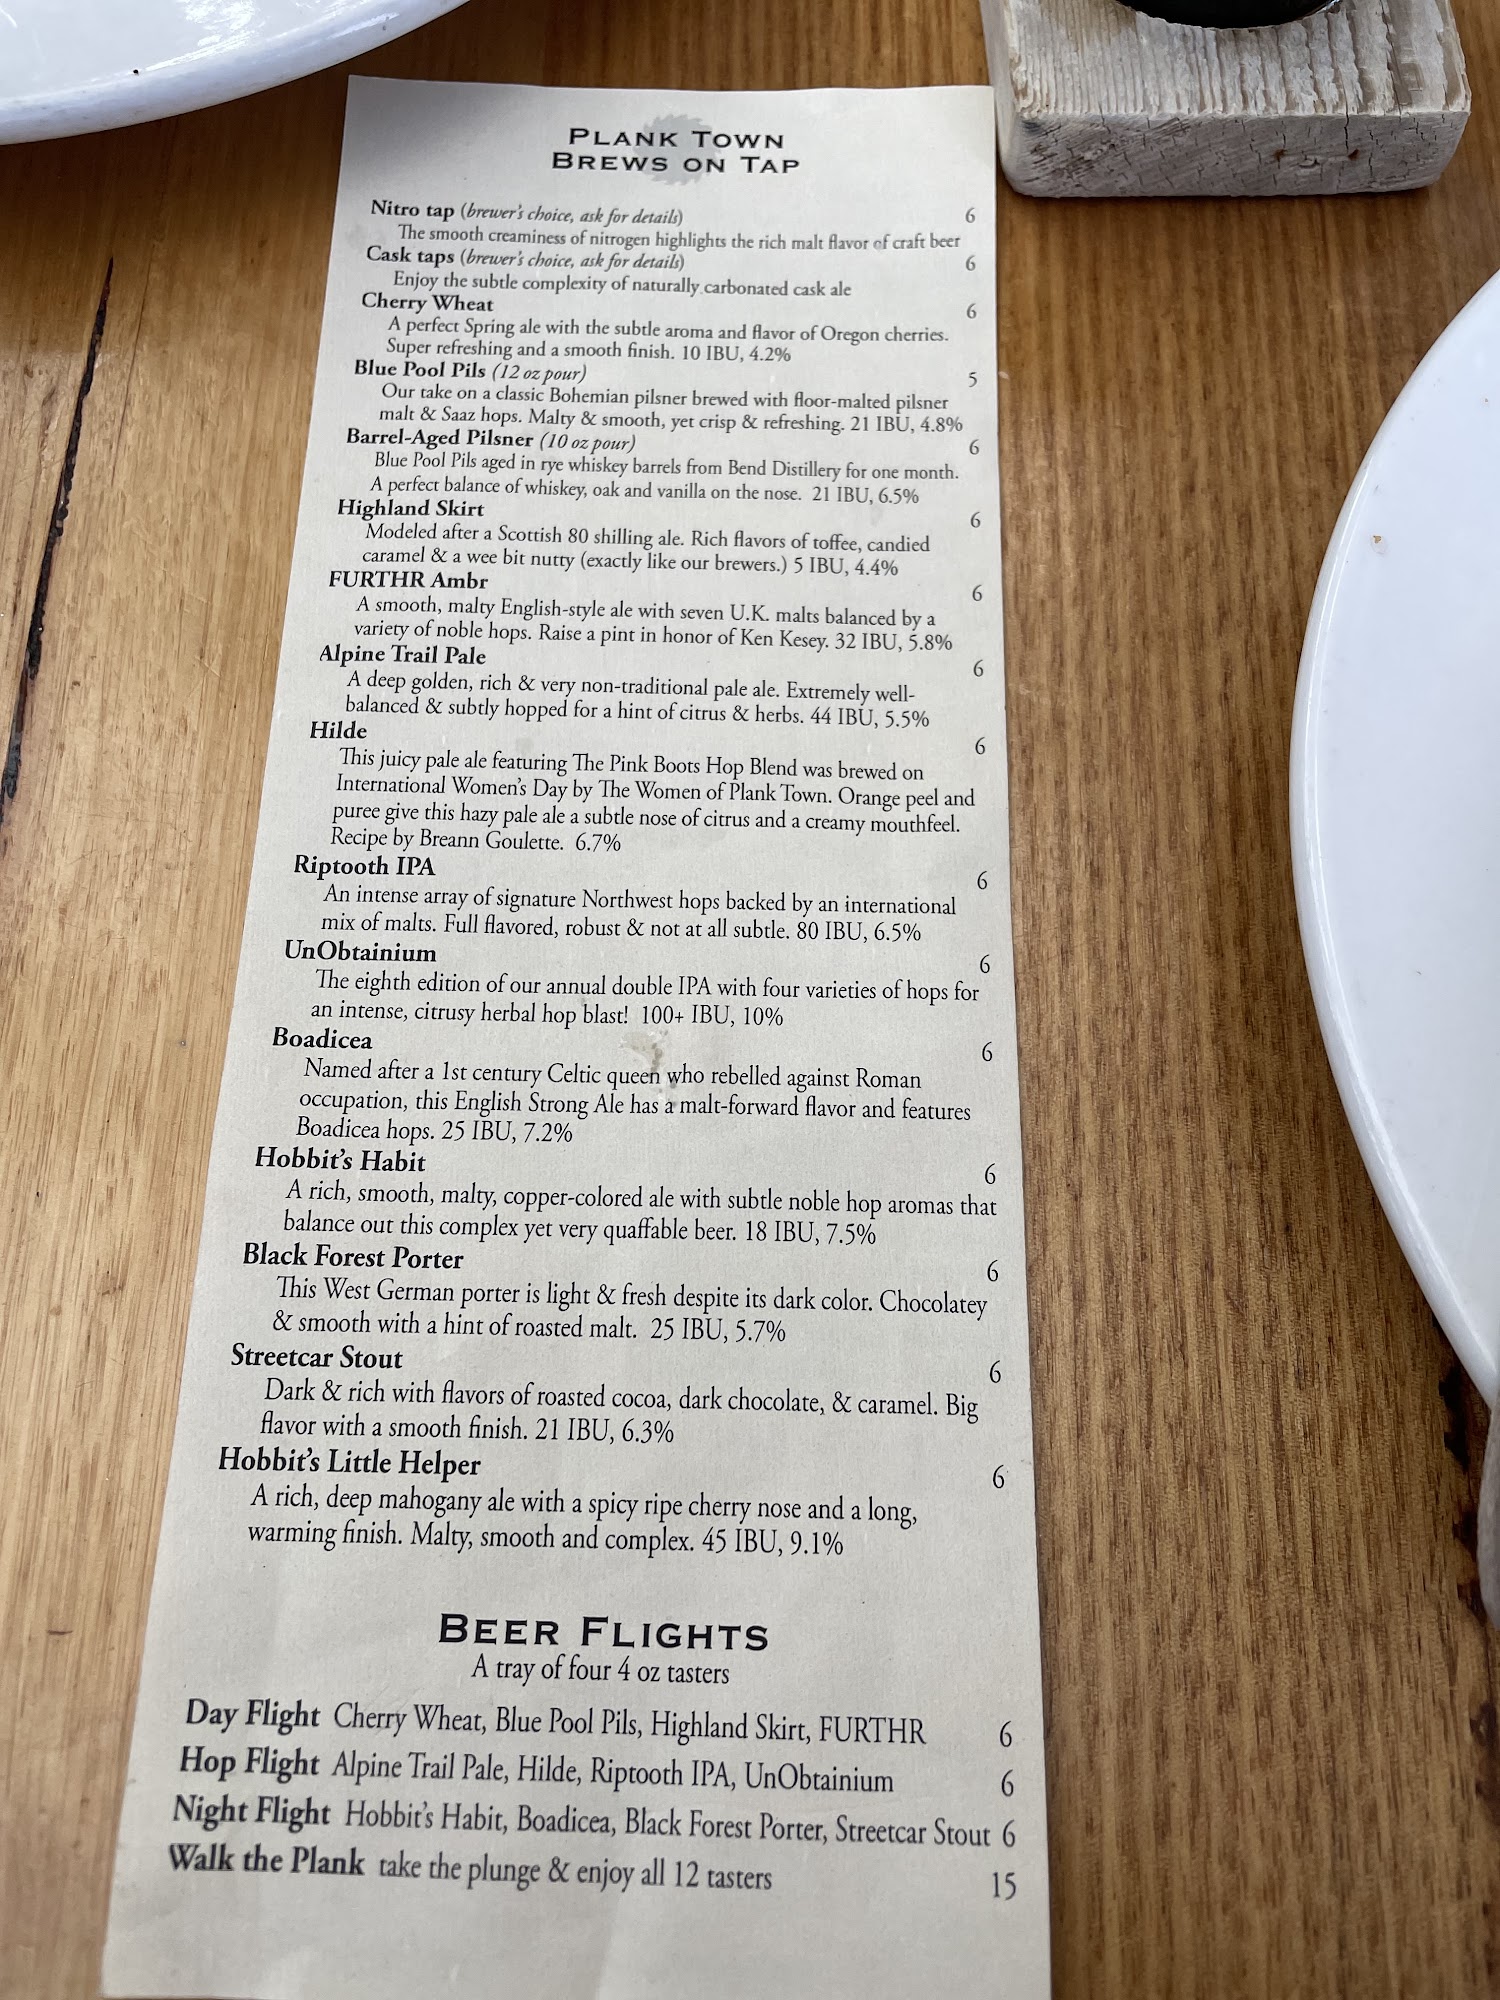 PLANK TOWN
BREWS ON TAP
Nitro tap (brewer's choice, ask for details) 6
The smooth creaminess of nitrogen highlights the rich malt flavor of craft beer
Cask taps (brewer's choice, ask for details) 6
Enjoy the subtle complexity of naturally carbonated cask ale
Cherry Wheat 6
A perfect Spring ale with the subtle aroma and flavor of Oregon cherries.
Super refreshing and a smooth finish. 10 IBU, 4.2%
Blue Pool Pils (12 oz pour) 5
Our take on a classic Bohemian pilsner brewed with floor-malted pilsner
malt & Saaz hops. Malty & smooth, yet crisp & refreshing. 21 IBU, 4.8%
Barrel-Aged Pilsner (10 oz pour) 6
Blue Pool Pils aged in rye whiskey barrels from Bend Distillery for one month.
A perfect balance of whiskey, oak and vanilla on the nose. 21 IBU, 6.5%
Highland Skirt 6
Modeled after a Scottish 80 shilling ale. Rich flavors of toffee, candied
caramel & a wee bit nutty (exactly like our brewers.) 5 IBU, 4.4%
FURTHR Ambr 6
A smooth, malty English-style ale with seven U.K. malts balanced by a
variety of noble hops. Raise a pint in honor of Ken Kesey. 32 IBU, 5.8%
Alpine Trail Pale 6
A deep golden, rich & very non-traditional pale ale. Extremely well-
balanced & subtly hopped for a hint of citrus & herbs. 44 IBU, 5.5%
Hilde 6
This juicy pale ale featuring The Pink Boots Hop Blend was brewed on
International Women's Day by The Women of Plank Town. Orange peel and
puree give this hazy pale ale a subtle nose of citrus and a creamy mouthfeel.
Recipe by Breann Goulette. 6.7%
Riptooth IPA 6
An intense array of signature Northwest hops backed by an international
mix of malts. Full flavored, robust & not at all subtle. 80 IBU, 6.5%
UnObtainium 6
The eighth edition of our annual double IPA with four varieties of hops for
an intense, citrusy herbal hop blast! 100+ IBU, 10%
Boadicea 6
Named after a 1st century Celtic queen who rebelled against Roman
occupation, this English Strong Ale has a malt-forward flavor and features
Boadicea hops. 25 IBU, 7.2%
Hobbit's Habit 6
A rich, smooth, malty, copper-colored ale with subtle noble hop aromas that
balance out this complex yet very quaffable beer. 18 IBU, 7.5%
Black Forest Porter 6
This West German porter is light & fresh despite its dark color. Chocolatey
& smooth with a hint of roasted malt. 25 IBU, 5.7%
Streetcar Stout 6
Dark & rich with flavors of roasted cocoa, dark chocolate, & caramel. Big
flavor with a smooth finish. 21 IBU, 6.3%
Hobbit's Little Helper 6
A rich, deep mahogany ale with a spicy ripe cherry nose and a long,
warming finish. Malty, smooth and complex. 45 IBU, 9.1%
BEER FLIGHTS
A tray of four 4 oz tasters
Day Flight Cherry Wheat, Blue Pool Pils, Highland Skirt, FURTHR 6
Hop Flight Alpine Trail Pale, Hilde, Riptooth IPA, UnObtainium 6
Night Flight Hobbit's Habit, Boadicea, Black Forest Porter, Streetcar Stout 6
Walk the Plank take the plunge & enjoy all 12 tasters 15